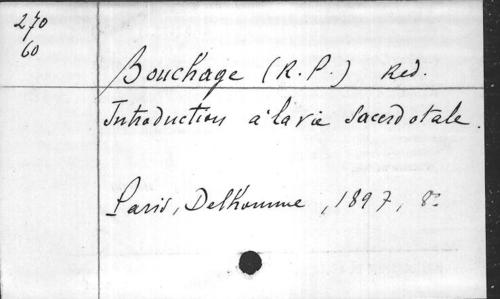 270
60
Bouchage (R. P.) Red.
Introduction à la vie Sacerdotale.
Paris, Delhomme, 1897, 8°